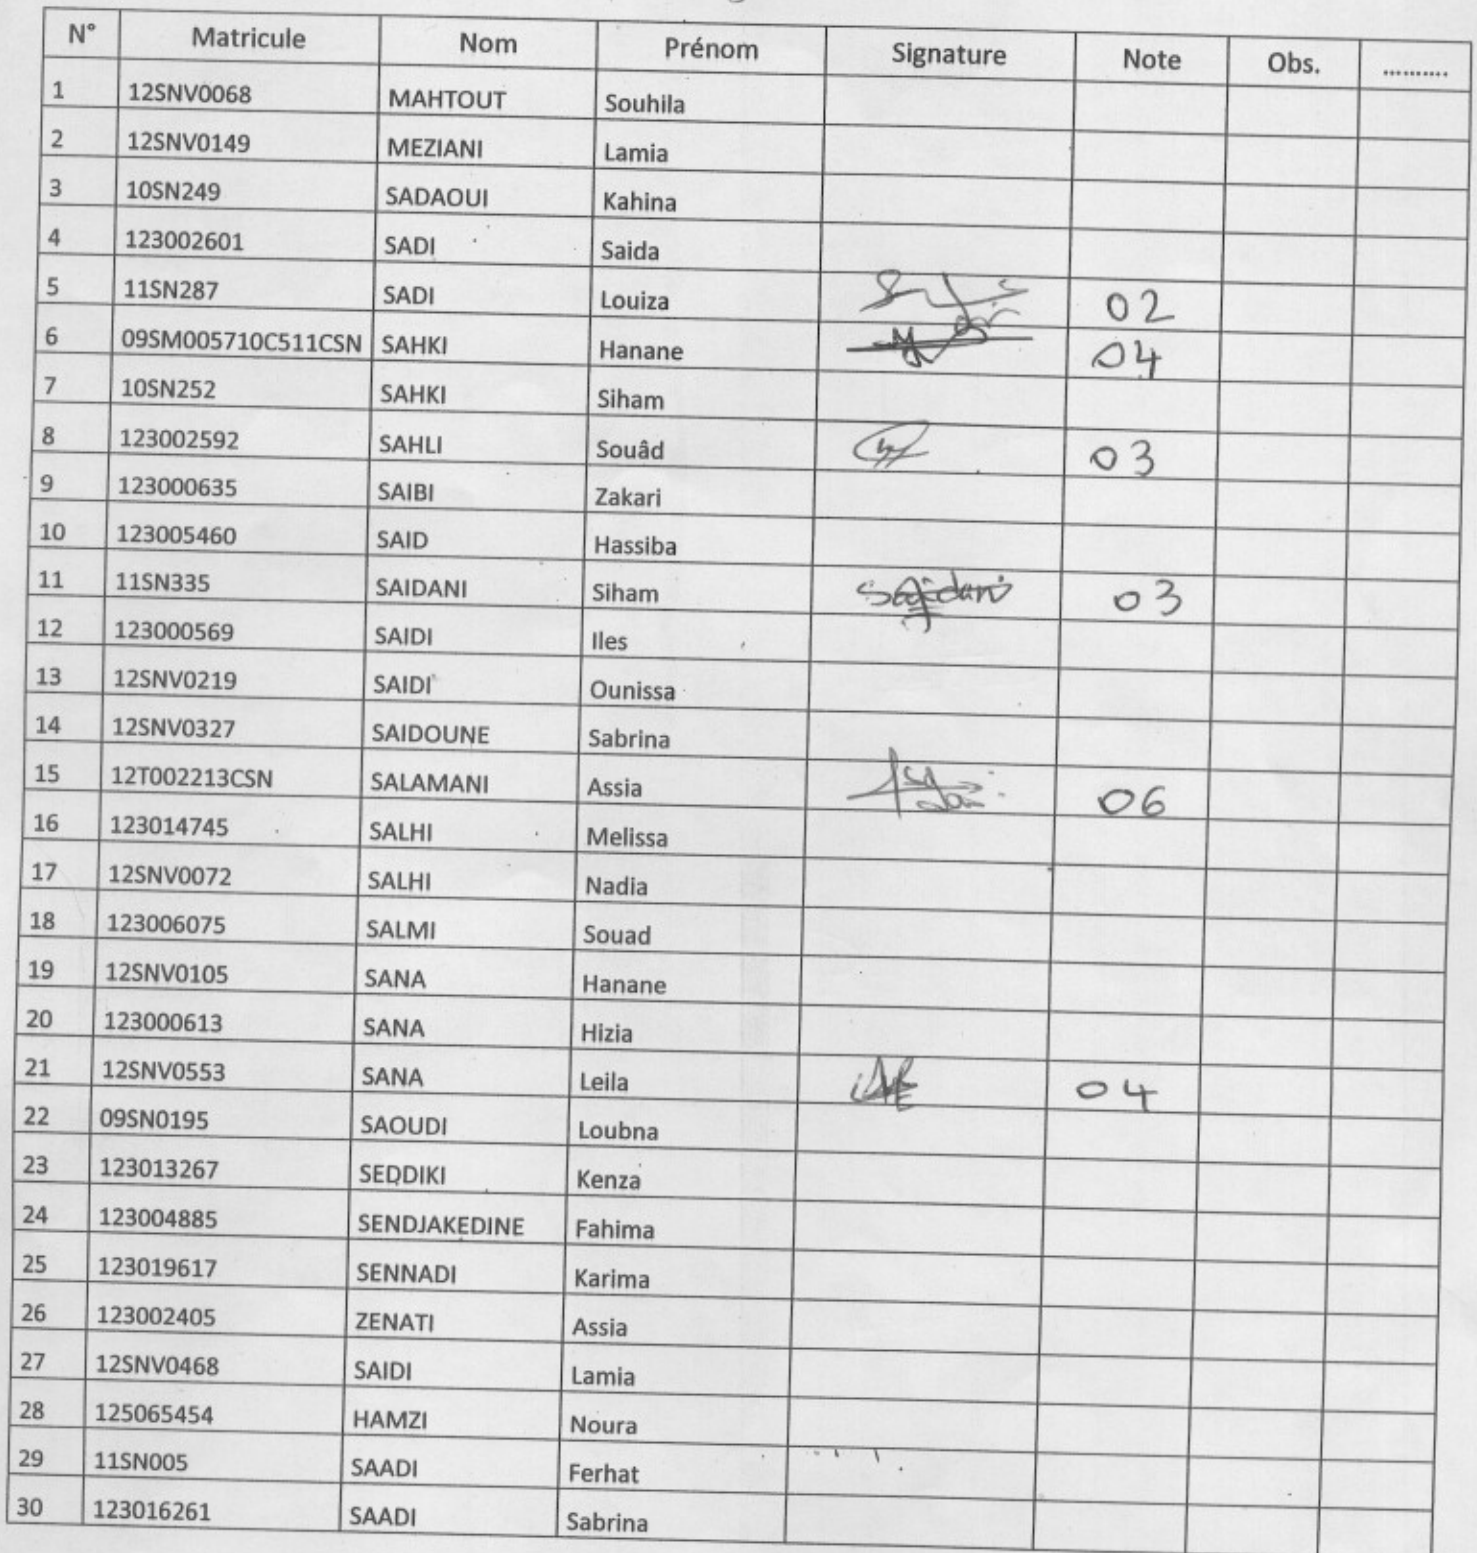 N° Matricule Nom Prénom Signature Note Obs. ..........
1 12SNV0068 MAHTOUT Souhila
2 12SNV0149 MEZIANI Lamia
3 10SN249 SADAOUI Kahina
4 123002601 SADI Saida
5 11SN287 SADI Louiza 02
6 09SM005710C511CSN SAHKI Hanane 04
7 10SN252 SAHKI Siham
8 123002592 SAHLI Souâd 03
9 123000635 SAIBI Zakari
10 123005460 SAID Hassiba
11 11SN335 SAIDANI Siham Saidani 03
12 123000569 SAIDI Iles
13 12SNV0219 SAIDI Ounissa
14 12SNV0327 SAIDOUNE Sabrina
15 12T002213CSN SALAMANI Assia 06
16 123014745 SALHI Melissa
17 12SNV0072 SALHI Nadia
18 123006075 SALMI Souad
19 12SNV0105 SANA Hanane
20 123000613 SANA Hizia
21 12SNV0553 SANA Leila 04
22 09SN0195 SAOUDI Loubna
23 123013267 SEDDIKI Kenza
24 123004885 SENDJAKEDINE Fahima
25 123019617 SENNADI Karima
26 123002405 ZENATI Assia
27 12SNV0468 SAIDI Lamia
28 125065454 HAMZI Noura
29 11SN005 SAADI Ferhat
30 123016261 SAADI Sabrina